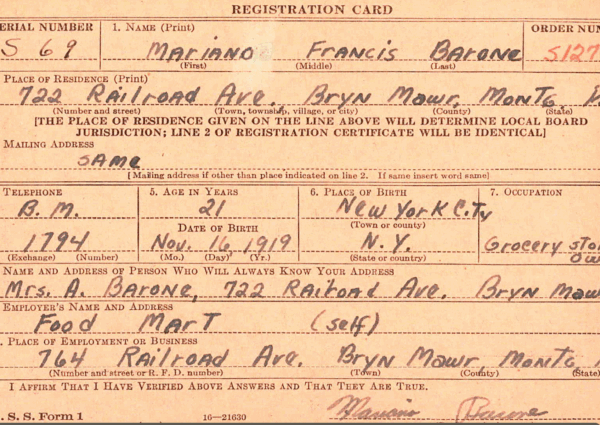 REGISTRATION CARD
ERIAL NUMBER 1. NAME (Print) ORDER NUM
S 69 Mariano Francis Barone S127
(First) (Middle) (Last)
PLACE OF RESIDENCE (Print)
722 Railroad Ave. Bryn Mawr, Montg. P
(Number and street) (Town, township, village, or city) (County) (State)
[THE PLACE OF RESIDENCE GIVEN ON THE LINE ABOVE WILL DETERMINE LOCAL BOARD
JURISDICTION; LINE 2 OF REGISTRATION CERTIFICATE WILL BE IDENTICAL]
MAILING ADDRESS
same
[Mailing address if other than place indicated on line 2. If same insert word same]
TELEPHONE 5. AGE IN YEARS 6. PLACE OF BIRTH 7. OCCUPATION
B. M. 21 New York City
DATE OF BIRTH (Town or county)
1794 Nov. 16 1919 N. Y. Grocery sto
ow
(Exchange) (Number) (Mo.) (Day) (Yr.) (State or country)
NAME AND ADDRESS OF PERSON WHO WILL ALWAYS KNOW YOUR ADDRESS
Mrs. A. Barone, 722 Railroad Ave. Bryn Maw
EMPLOYER'S NAME AND ADDRESS
Food Mart (self)
. PLACE OF EMPLOYMENT OR BUSINESS
764 Railroad Ave. Bryn Mawr, Montg
(Number and street or R. F. D. number) (Town) (County) (State)
I AFFIRM THAT I HAVE VERIFIED ABOVE ANSWERS AND THAT THEY ARE TRUE.
. S. S. Form 1 16—21630 Mariano Barone